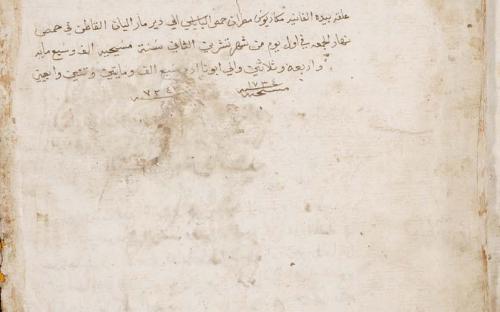 علقه بيده الفانيه مكاريوس مطران حمص الي دير مار اليان القاطن في حمص
نهار الجمعه في اول يوم من شهر تشرين الثاني سنة مسيحيه الف وسبع مايه
واربعه وثلاثين والي ابونا ادم سبع الف ومايتين
١٧٣٤ ٧٢٤٢
مسيحيه